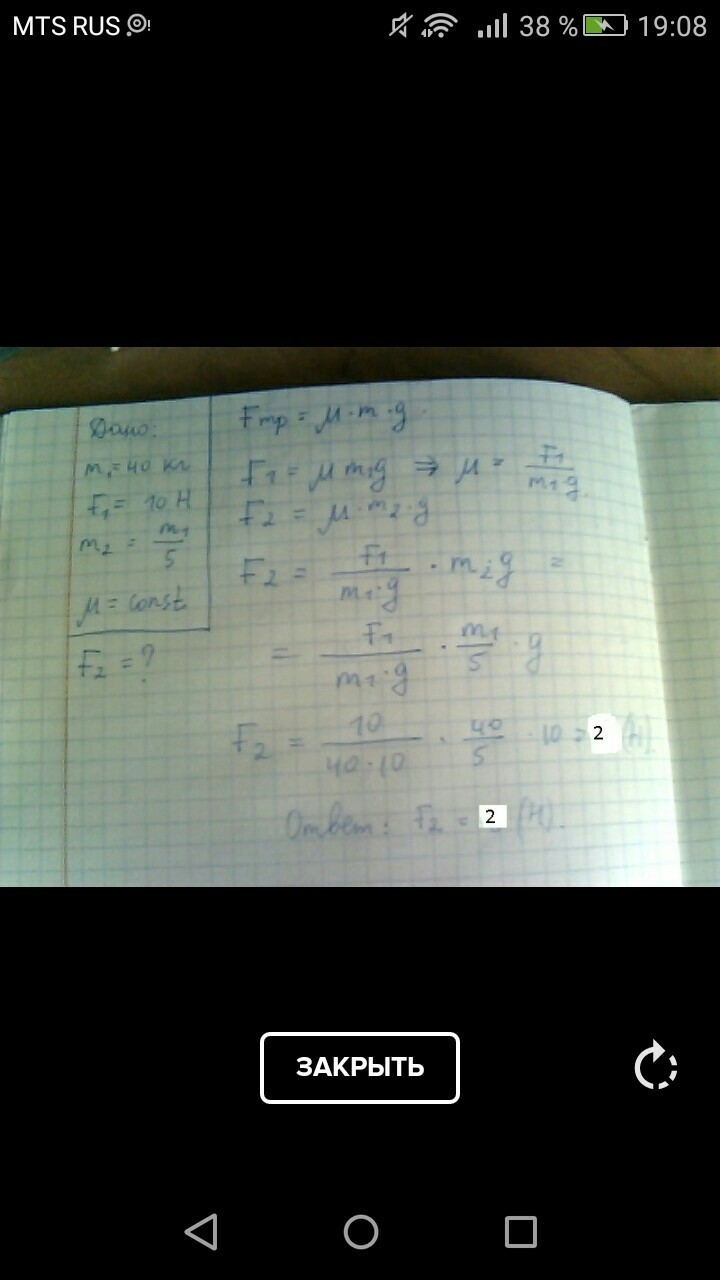 MTS RUS 38 % 19:08
Дано:
m₁ = 40 кг
F₁ = 10 Н
m₂ = m₁/5
μ = const
F₂ = ?
Fтр = μ · m · g
F₁ = μ m₁g ⇒ μ = F₁/(m₁·g)
F₂ = μ · m₂ · g
F₂ = F₁/(m₁·g) · m₂g =
= F₁/(m₁·g) · m₁/5 · g
F₂ = 10/(40·10) · 40/5 · 10 = 2 (Н)
Ответ: F₂ = 2 (Н).
ЗАКРЫТЬ